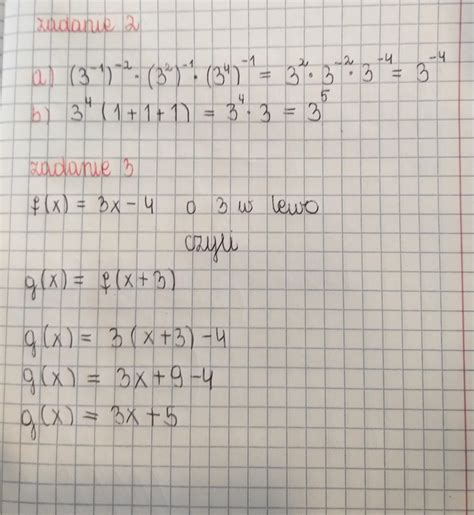 zadanie 2
a) (3⁻¹)⁻² · (3²)⁻¹ · (3⁴)⁻¹ = 3² · 3⁻² · 3⁻⁴ = 3⁻⁴
b) 3⁴ (1+1+1) = 3⁴ · 3 = 3⁵
zadanie 3
f(x) = 3x - 4 o 3 w lewo
czyli
g(x) = f(x+3)
g(x) = 3(x+3) - 4
g(x) = 3x + 9 - 4
g(x) = 3x + 5